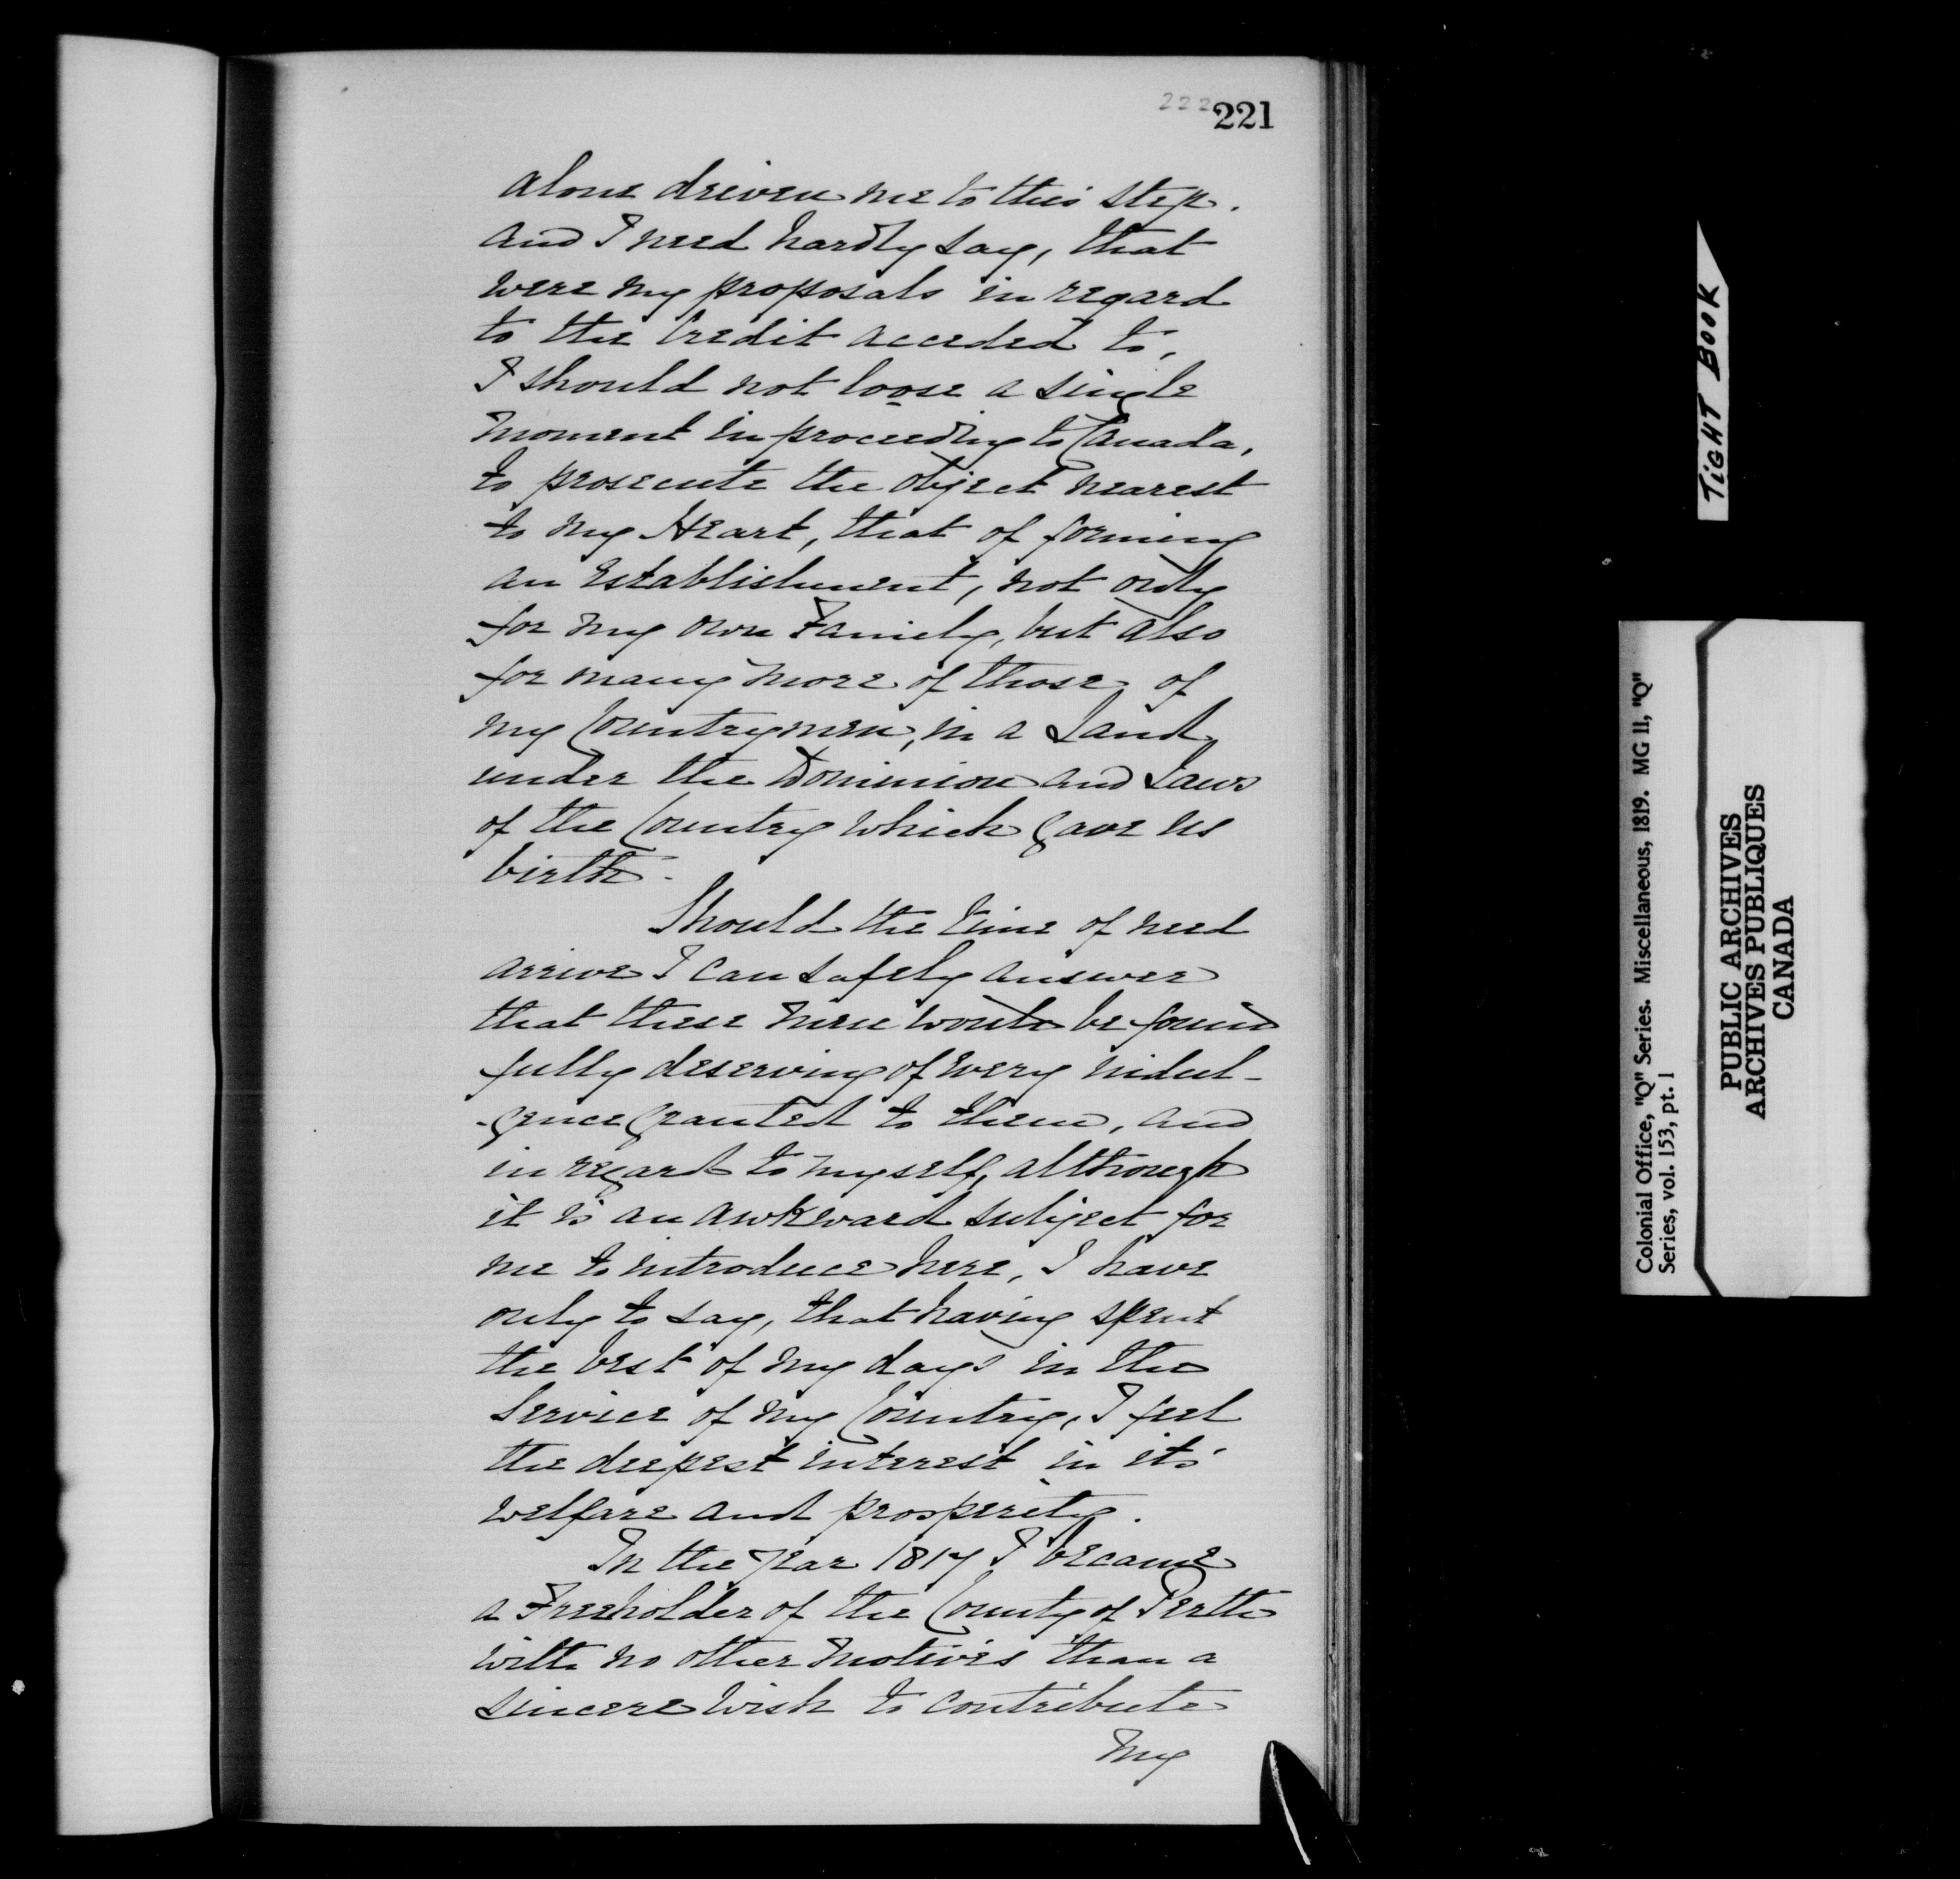 222 221
alone driven me to this step.
and I need hardly say, that
were my proposals in regard
to the Credit acceded to,
I should not loose a single
moment in proceeding to Canada,
to prosecute the object nearest
to my Heart, that of forming
an Establishment, not only
for my own Family, but also
for many more of those of
my Countrymen, in a Land
under the Dominion and Laws
of the Country which gave us
birth.
Should the time of need
arrive I can safely answer
that these men would be found
fully deserving of every indul-
-gence granted to them, and
in regard to myself, although
it is an awkward subject for
me to introduce here, I have
only to say, that having spent
the best of my days in the
Service of my Country, I feel
the deepest interest in its
welfare and prosperity.
In the year 1817 I became
a Freeholder of the County of Perth
with no other motives than a
sincere wish to contribute
my
TiGHT BOOK
Colonial Office, "Q" Series. Miscellaneous, 1819. MG 11, "Q"
Series, vol. 153, pt. 1
PUBLIC ARCHIVES
ARCHIVES PUBLIQUES
CANADA